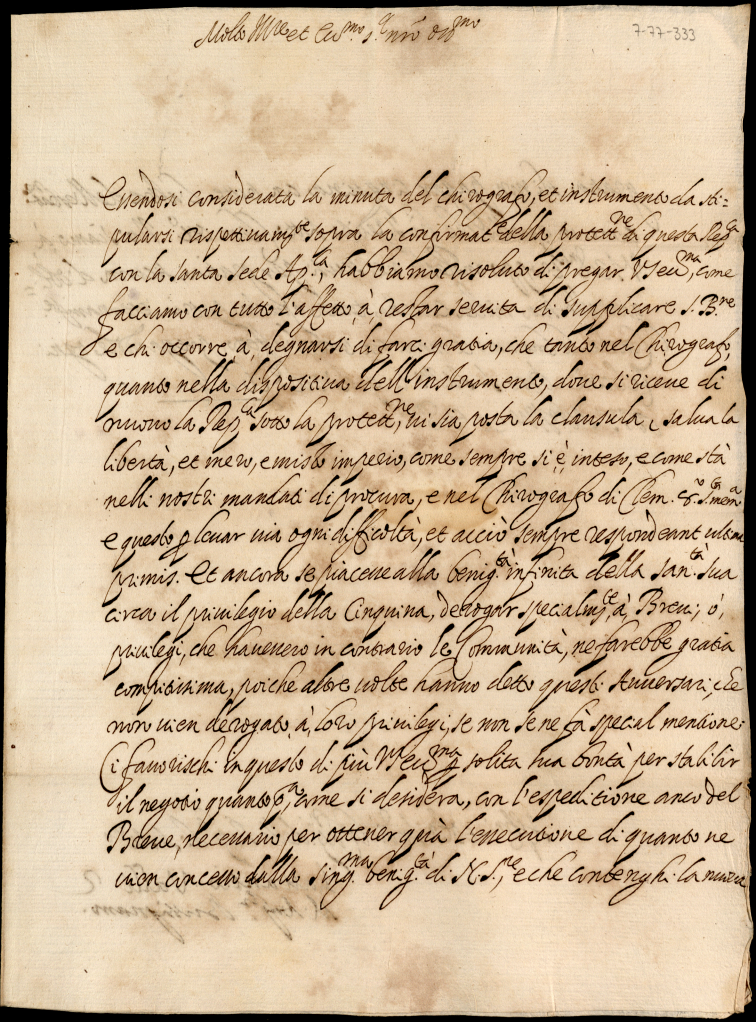 Molto Ill.re et Ecc.mo S.r nr̃o oss.mo
7-77-333
Essendosi considerata la minuta del chirografo, et instrumento da sti-
pularsi rispettivam.te sopra la confirmat.e della protett.ne di questa Rep.ca
con la santa Sede Ap.ca, habbiamo risoluto di pregar V.S. Ecc.ma, come
facciamo con tutto l'affetto, à restar servita di supplicare S. B.ne
e chi occorre, à degnarsi di farci gratia, che tanto nel Chirografo,
quanto nella dispositiva dell'instrumento, dove si riceve di
nuovo la Rep.ca sotto la protett.ne, vi sia posta la clausula, salva la
libertà, et mero, e misto imperio, come sempre si è inteso, e come stà
nelli nostri mandati di procura, e nel Chirografo di Clem. 8.o S.ta mem.a
e questo p levar via ogni difficoltà, et acciò sempre respondeant ultima
primis. Et ancora se piacesse alla benig.tà infinita della San.tà Sua
circa il privilegio della Cinquina, derogar specialm.te, à Brevi, ò,
privilegi, che havessero in contrario le Communità, ne farebbe gratia
compitissima, poiche altre volte hanno detto questi Avversari, che
non vien derogato, à loro privilegi, se non se ne fà special mentione.
Ci favorischi in questo di più V.S. Ecc.ma p solita sua bontà per stabilir
il negotio quanto p.a, come si desidera, con l'espeditione anco del
Breve, necessario per ottener quà l'essecutione di quanto ne
vien concesso dalla Sing.ma benig.tà di N. S.re, e che contenghi la nuova